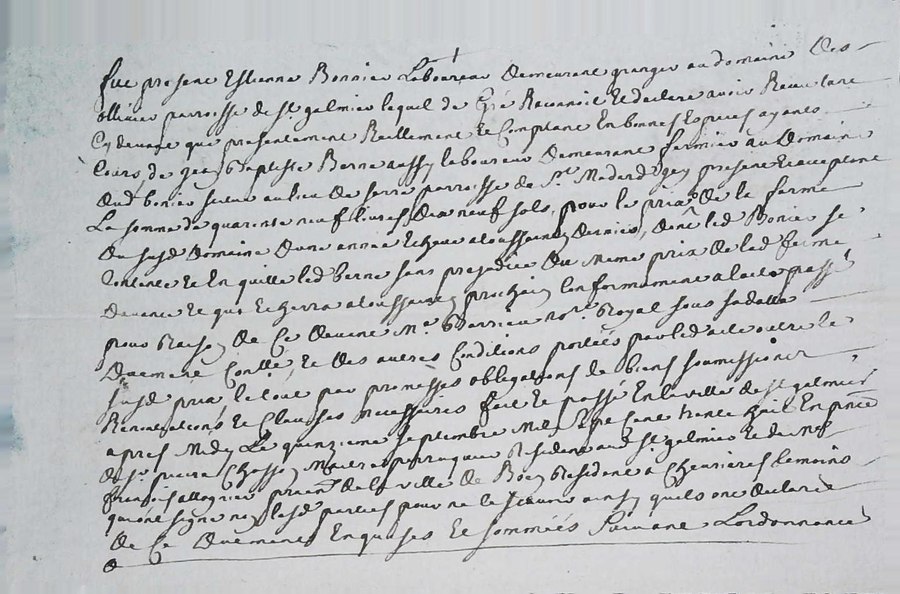 fut present Estienne Bonnier Laboureur demeurant granger au domaine des
ollivier parroisse de st galmier lequel de gré Reconnoit et declare avoir Reçu tant
cy devant que presentement Reellement et Comptant En bonnes Especes ayants
Cours de jean baptiste Berne aussy laboureur demeurant fermier au Domaine
dud bonier au lieu de parroisse de st Medard Egey present et acceptant
La somme de quarente neuf livres dix neuf sols, pour le prix de la ferme
du susd domaine d'une année Echeue a toussainct dernier, dont led Bonier se
Contente et En quitte led berne sans prejudice du meme prix de lad ferme
devance et qui Echerra a toussainct prochain Conformement a lacte passé
pour Raison de Ce devant Me Barrieu nore Royal sous sa datte
Duement Conllé, et des autres Conditions portées par led acte outre le
susd prix le tout par promesses obligations de biens soumissions
Renonciations et Clauses necessaires fait et passé En la ville de st galmier
apres Midy Le quinzieme septembre Mil sept Cent trente huit En pnce
de sr pierre Maitre perruquier Residant aud st galmier et de Me
françois praen de la ville de Boen Residant à Chevrieres temoins
qui ont signé non lesd parties pour ne le scavoir ainsy quils ont declaré
de Ce duement Enquises et sommées suivant Lordonnance